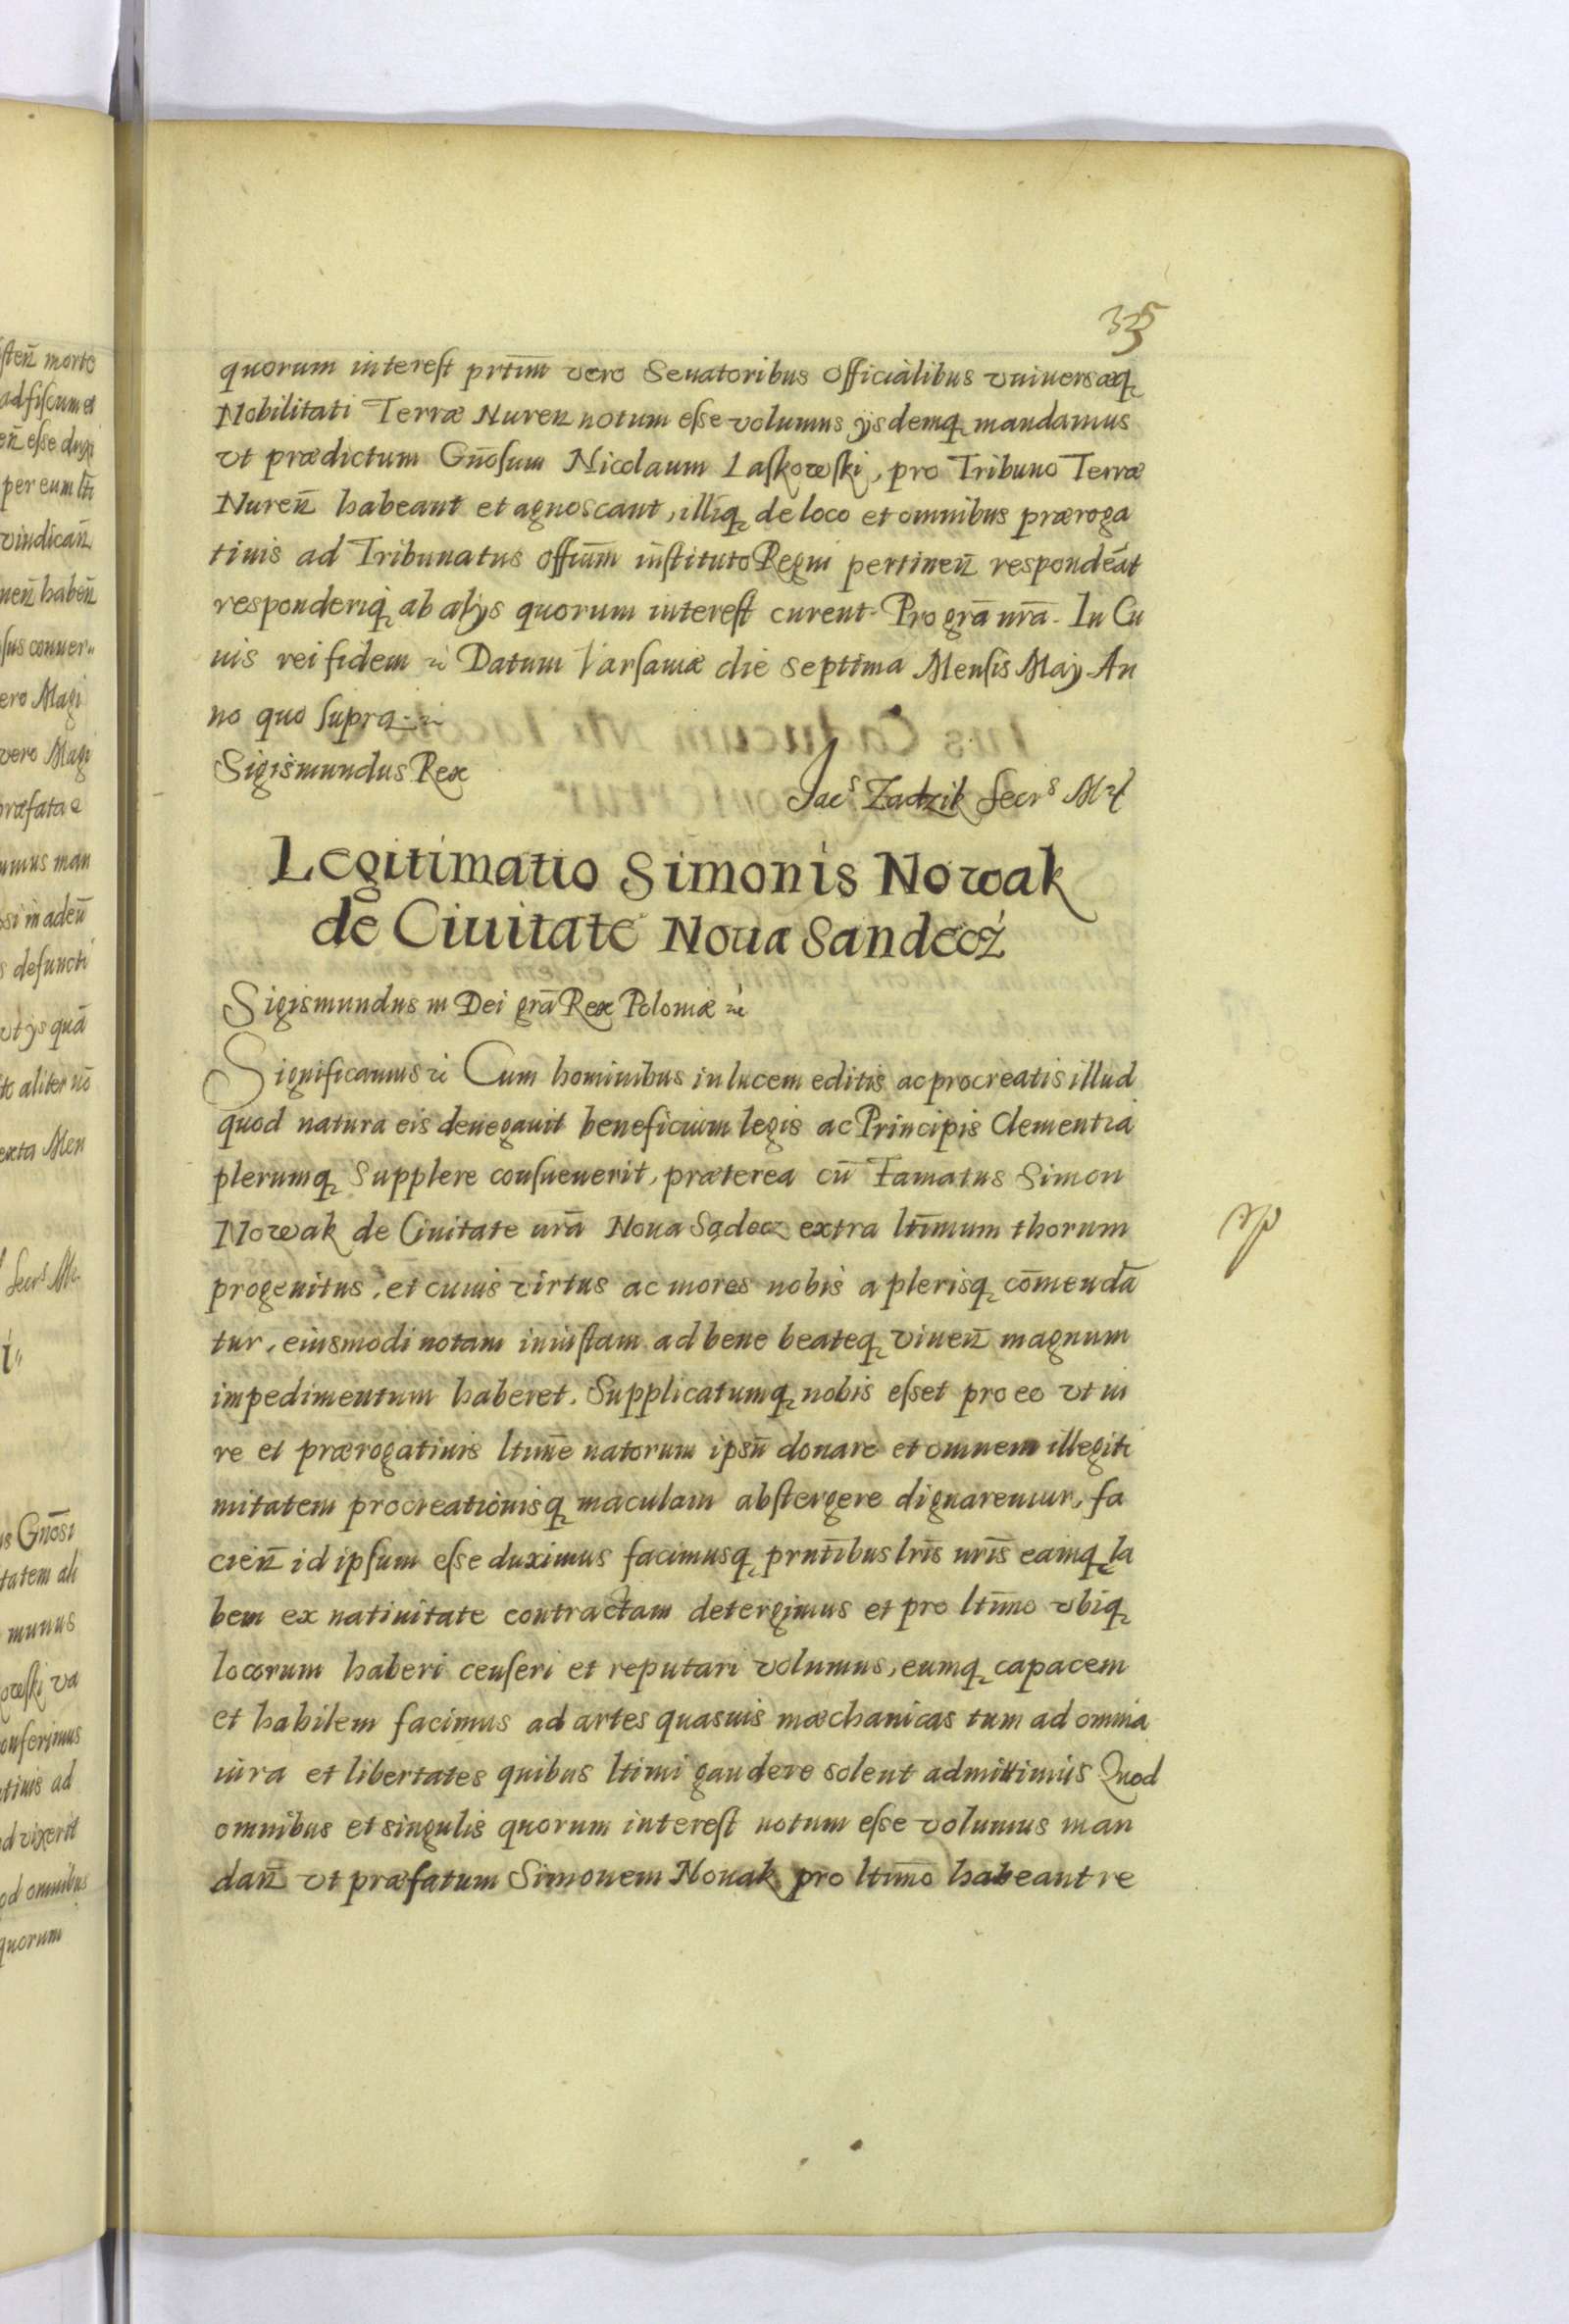 335
quorum interest prtim̄ vero Senatoribus Officialibus vniuersæq₃
Nobilitati Terræ Nuren notum esse volumus ijsdemq₃ mandamus
vt prædictum Gn̄osum Nicolaum Laskowski, pro Tribuno Terræ
Nuren̄ habeant et agnoscant, illiq₃ de loco et omnibus præroga
tiuis ad Tribunatus offium̄ instituto Regni pertinen̄ respondeāt
responderiq₃ ab alijs quorum interest curent. Pro grā nrā. In Cu
ius rei fidem Datum Varsauiæ die septima Mensis Maij An
no quo supra
Sigismundus Rex
Jacs Zadzik Secrs
Legitimatio Simonis Nowak
de Ciuitate Noua Sandecz
Sigismundus III Dei grā Rex Poloniæ
Significamus Cum hominibus in lucem editis ac procreatis illud
quod natura eis denegauit beneficium legis ac Principis Clementia
plerumq₃ Supplere consueuerit, præterea cū Famatus Simon
Nowak de Ciuitate nrā Noua Sądecz extra ltīmum thorum
progenitus, et cuius virtus ac mores nobis a plerisq₃ cōmendā
tur, eiusmodi notam iniustam ad bene beateq₃ viuen̄ magnum
impedimentum haberet. Supplicatumq₃ nobis esset pro eo vt iu
re et prærogatiuis ltim̄e natorum ipsū donare et omnem illegiti
mitatem procreationisq₃ maculam abstergere dignaremur, fa
cien̄ id ipsum esse duximus facimusq₃ prntībus lrīs nrīs eamq₃ la
bem ex natiuitate contractam detergimus et pro ltim̄o vbiq₃
locorum haberi censeri et reputari volumus, eumq₃ capacem
et habilem facimus ad artes quasuis mæchanicas tum ad omnia
iura et libertates quibus ltimi gaudere solent admittimus Quod
omnibus et singulis quorum interest notum esse volumus man
dan̄ vt præfatum Simonem Nouak pro ltim̄o habeant re